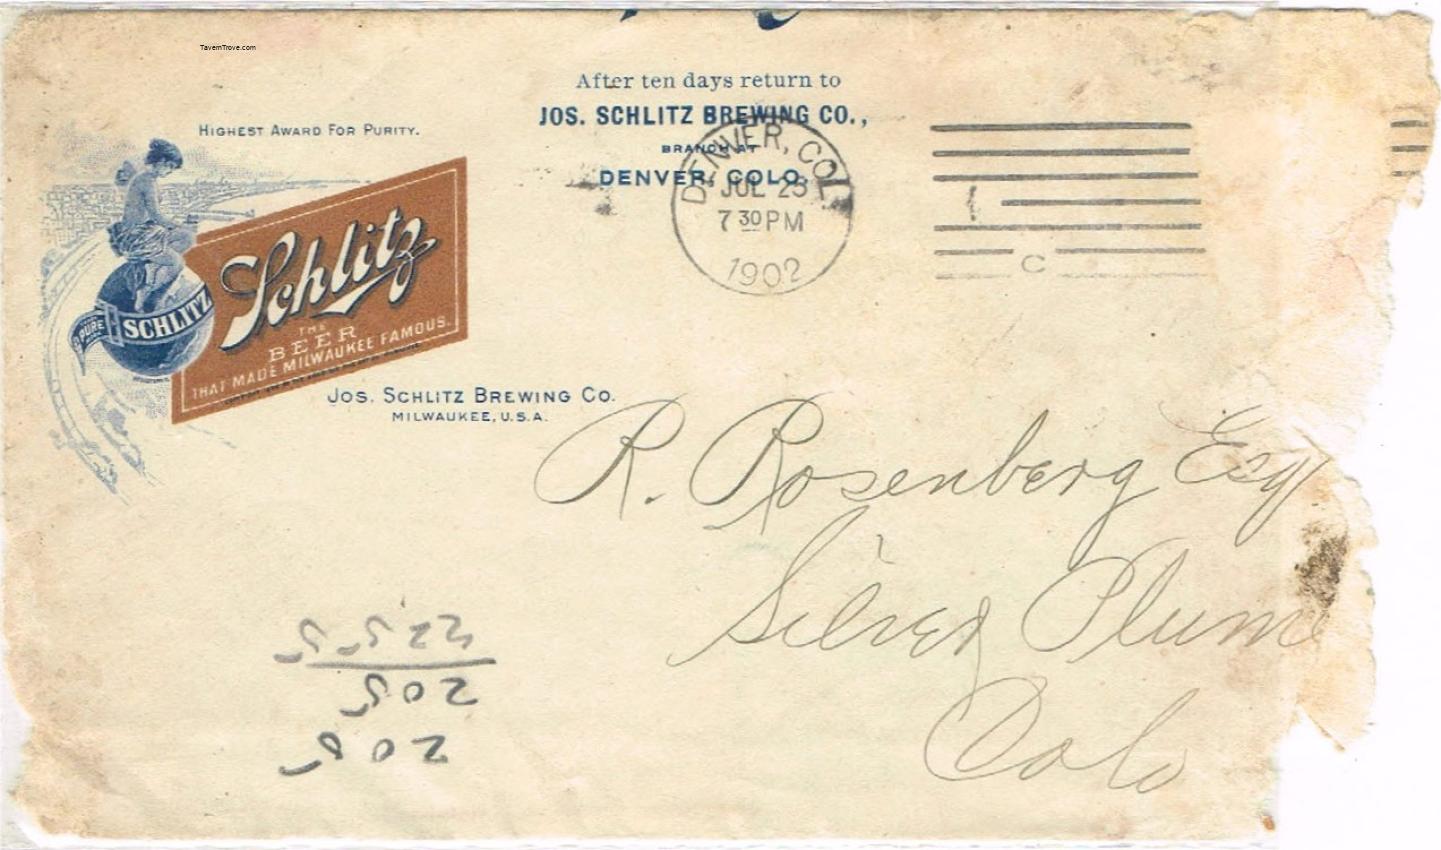 TavernTrove.com
After ten days return to
JOS. SCHLITZ BREWING CO.,
BRANCH AT
DENVER, COLO.
DENVER, COL.
JUL 25
7 30 PM
1902
C
HIGHEST AWARD FOR PURITY.
PURE
SCHLITZ
Schlitz
THE
BEER
THAT MADE MILWAUKEE FAMOUS.
JOS. SCHLITZ BREWING CO.
MILWAUKEE, U.S.A.
R. Rosenberg Esq
Silver Plume
Colo
205
205
2255